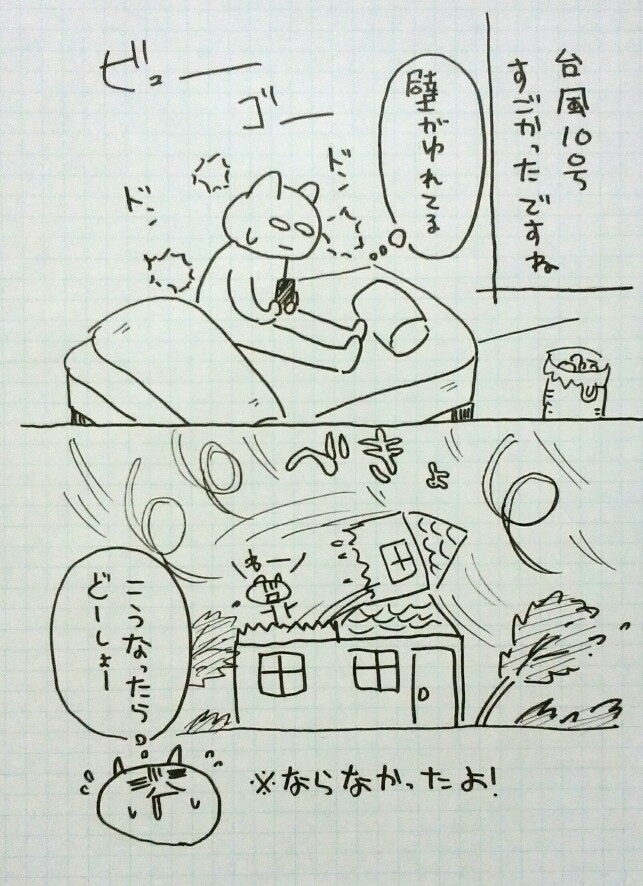 台風10号
すごかったですね
壁がゆれてる
ビュー
ゴー
ドン
ドン
べきょ
わー
こうなったら
どーしょー
※ならなかったよ!